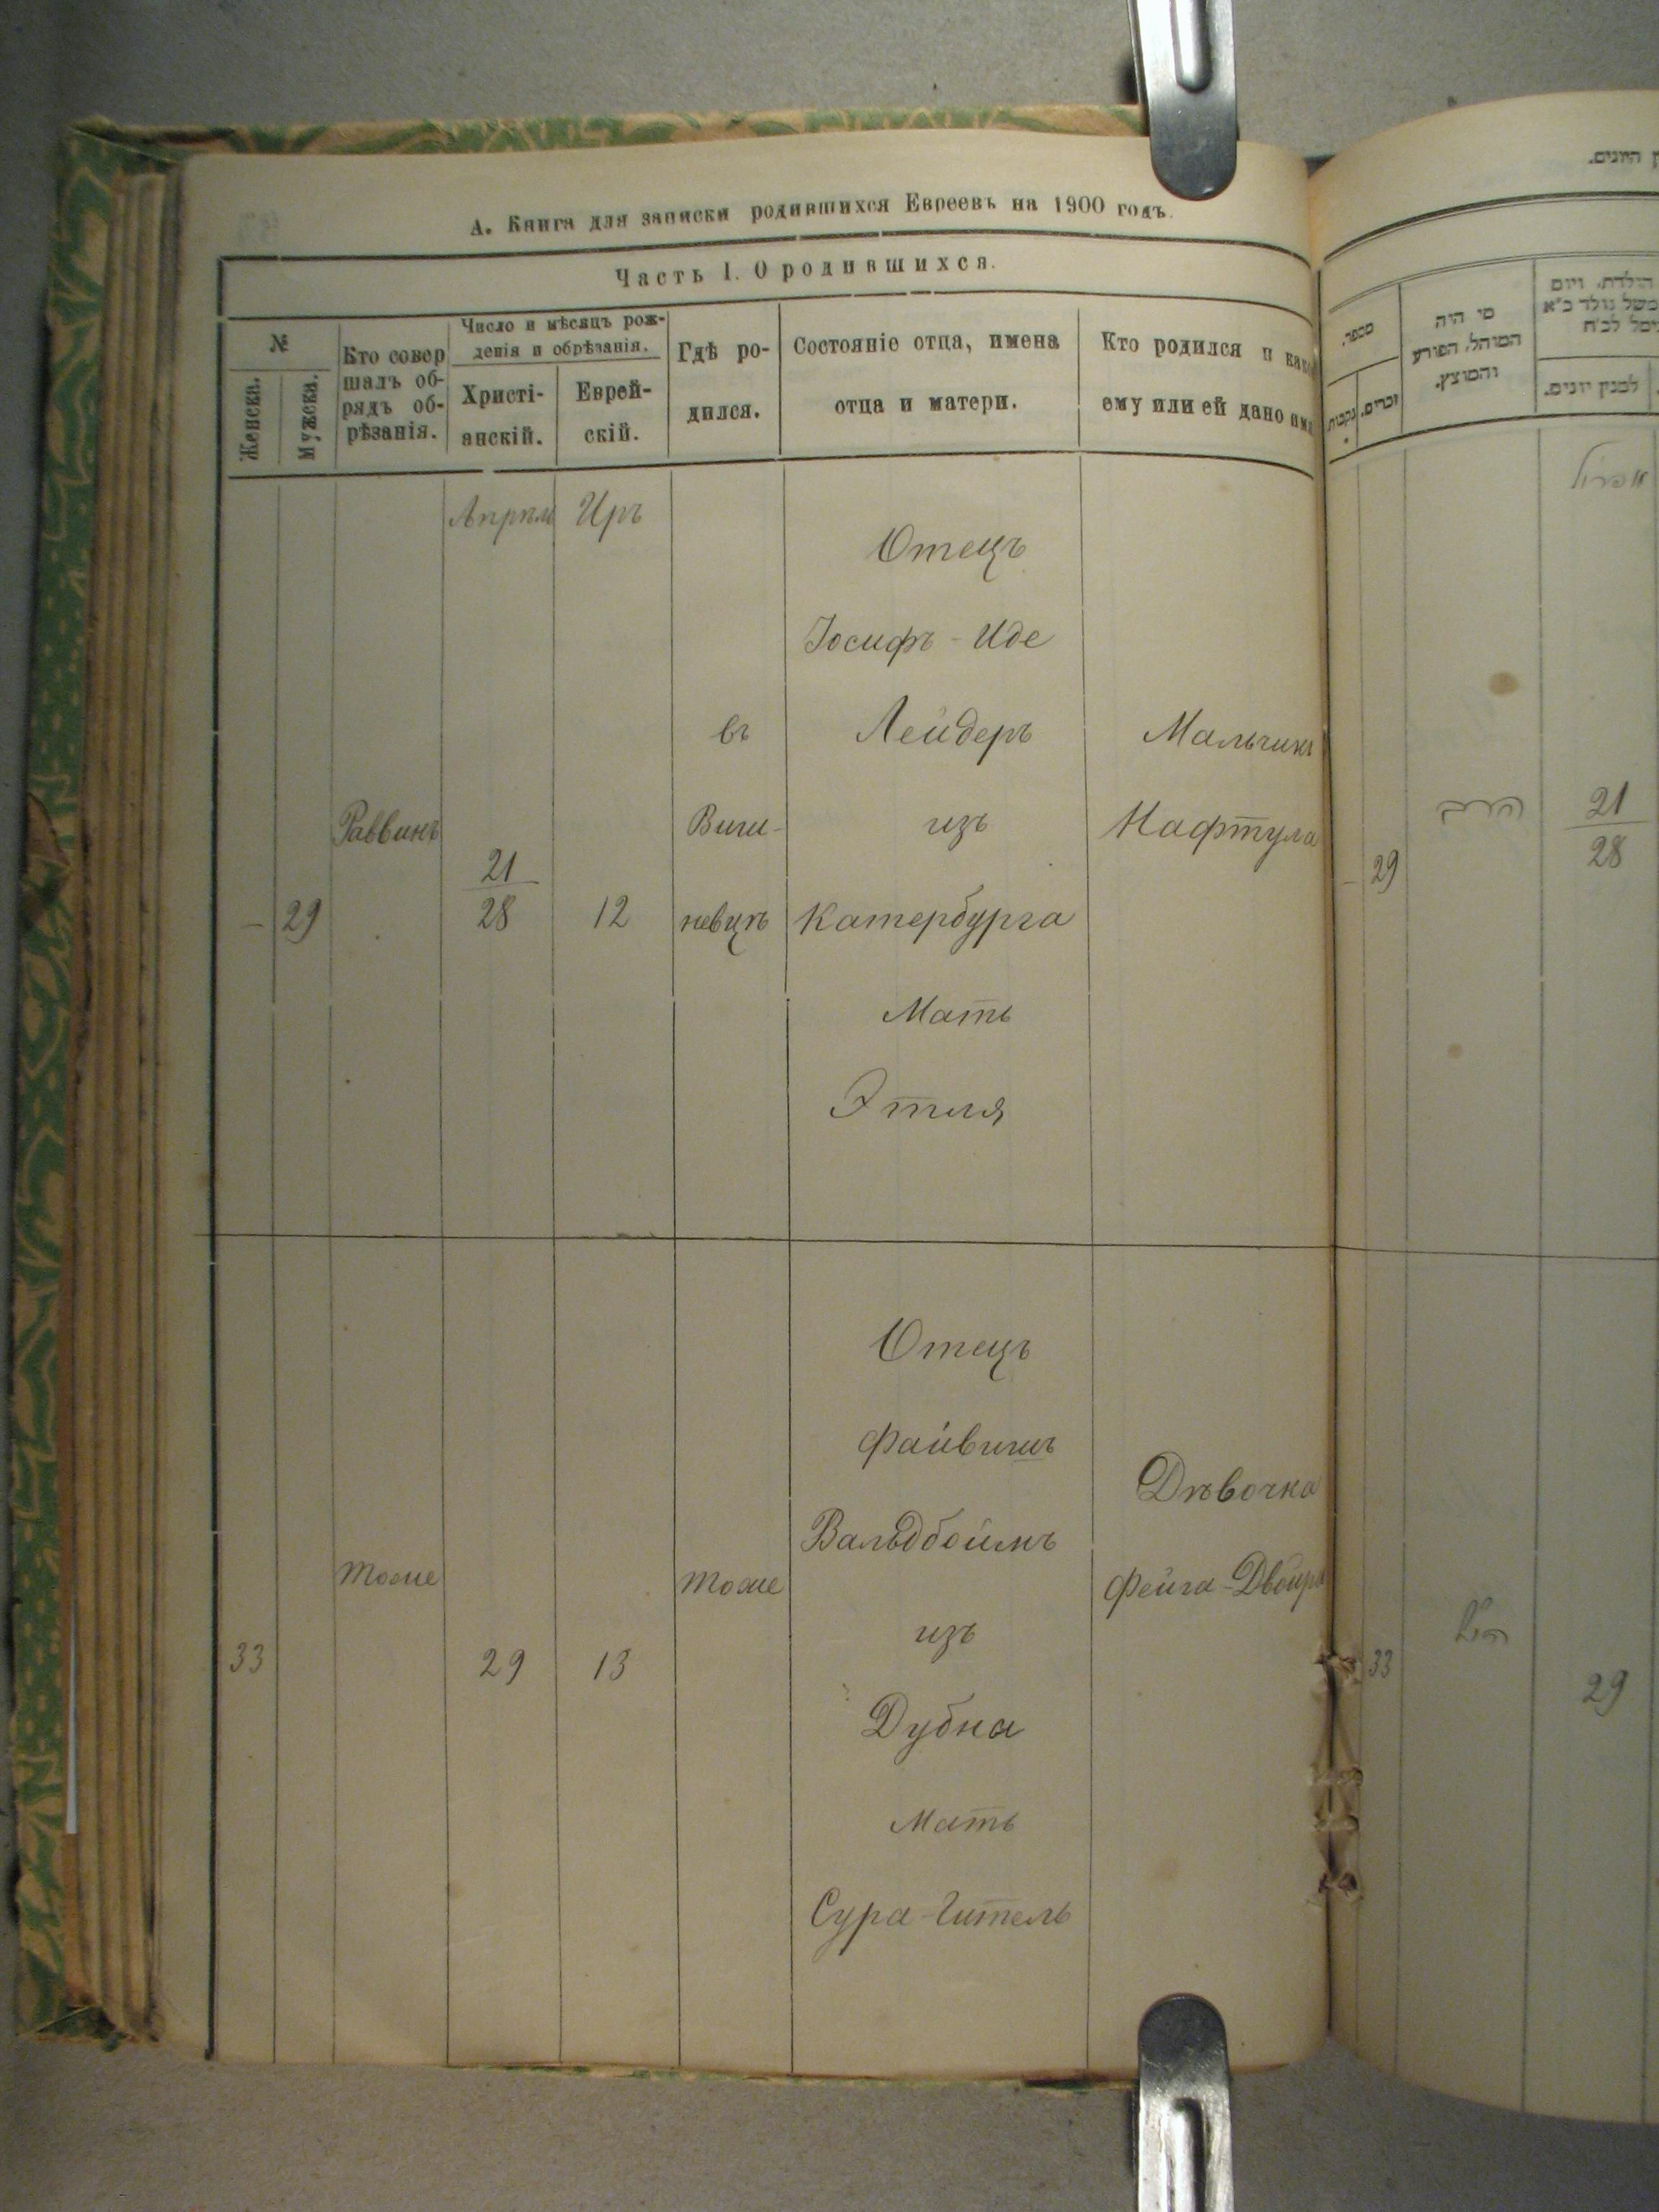 А. Книга для записки родившихся Евреевъ на 1900 годъ.
Часть I. О родившихся.
№
Женска.
Мужска.
Кто совер
шалъ об-
рядъ об-
рѣзанія.
Число и мѣсяцъ рож-
денія и обрѣзанія.
Христі-
анскій.
Еврей-
скій.
Гдѣ ро-
дился.
Состояніе отца, имена
отца и матери.
Кто родился и како
ему или ей дано имя
Апрѣль
Иръ
29
Раввинъ
21
28
12
въ
Виши-
невцѣ
Отецъ
Іосифъ - Иде
Лейдеръ
изъ
Катербурга
Мать
Этля
Мальчикъ
Нафтула
33
тоже
29
13
тоже
Отецъ
Файвишъ
Вальдбоймъ
изъ
Дубна
Мать
Сура-Гитель
Дѣвочка
Фейга-Двойра
מספר.
נקבות
זכרים.
מי היה
המוהל, הפורע
והמוצץ.
הולדת, ויום
למנין יונים.
אפריל
29
הרב
21
28
33
29